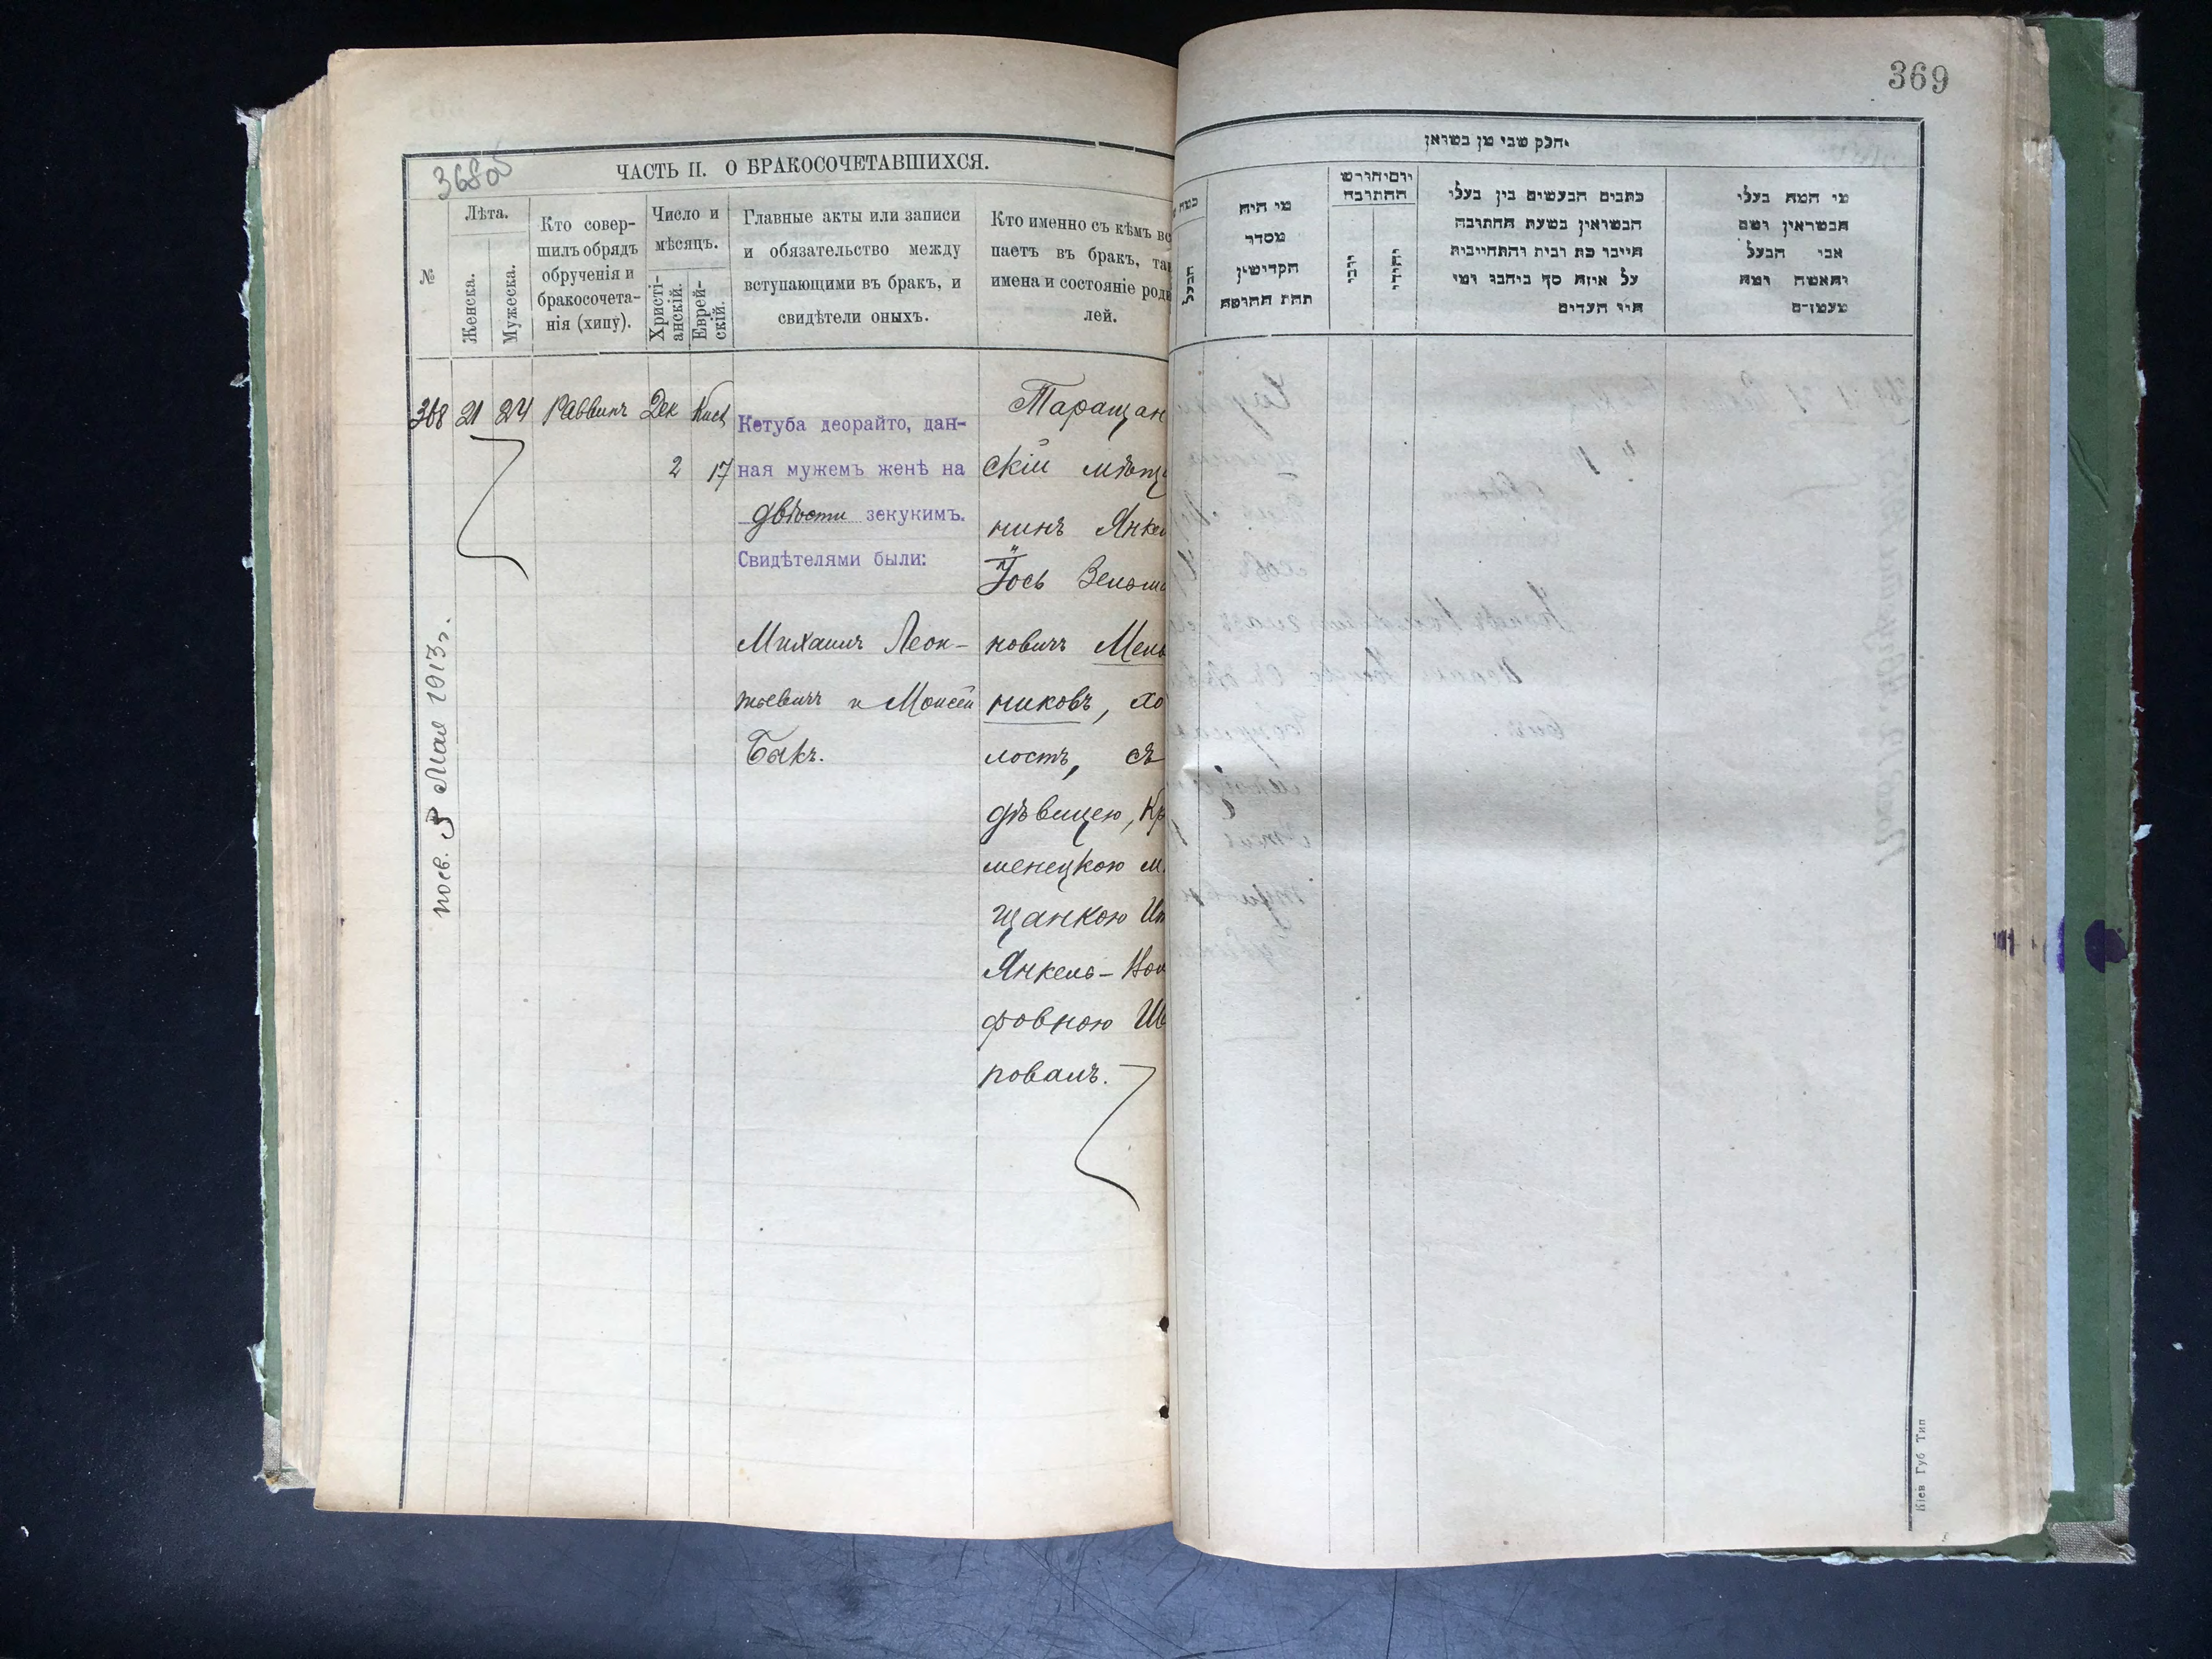 368об
ЧАСТЬ II. О БРАКОСОЧЕТАВШИХСЯ.
№
Лѣта.
Женска.
Мужеска.
Кто совер-
шилъ обрядъ
обрученія и
бракосочета-
нія (хипу).
Число и
мѣсяцъ.
Христі-
анскій.
Еврей-
скій.
Главные акты или записи
и обязательство между
вступающими въ бракъ, и
свидѣтели оныхъ.
Кто именно съ кѣмъ вс
паетъ въ бракъ, так
имена и состояніе роди
лей.
368 21 24 Раввинъ Дек Кисл
2 17
Кетуба деорайто, дан-
ная мужемъ женѣ на
двѣсти зекукимъ.
Свидѣтелями были:
Михаилъ Леон-
тьевичъ и Моисей
Быкъ.
Таращан
скій мѣща
нинъ Янке
Іось Зельма
новичъ Мель
никовъ, хо
лостъ, съ
дѣвицею, Кр
менецкою м
щанкою
Янкель-
фовною
повалъ.
пов. 3 Мая 1913 г.
369
חלק שני מן נשואין
הבעל
מי היה
מסדר
הקדושין
תחת החופה
יום וחודש
החתונה
יוני
יהודי
כתבים הנעשים בין בעלי
הנשואין בשעת החתונה
חיובי כת ובית והתחייבות
על איזה סך כיתבו ומי
היו העדים
מי המה בעלי
הנשואין ושם
אבי הבעל
והאשה ומה
מעמדם
Кіев Губ Тип